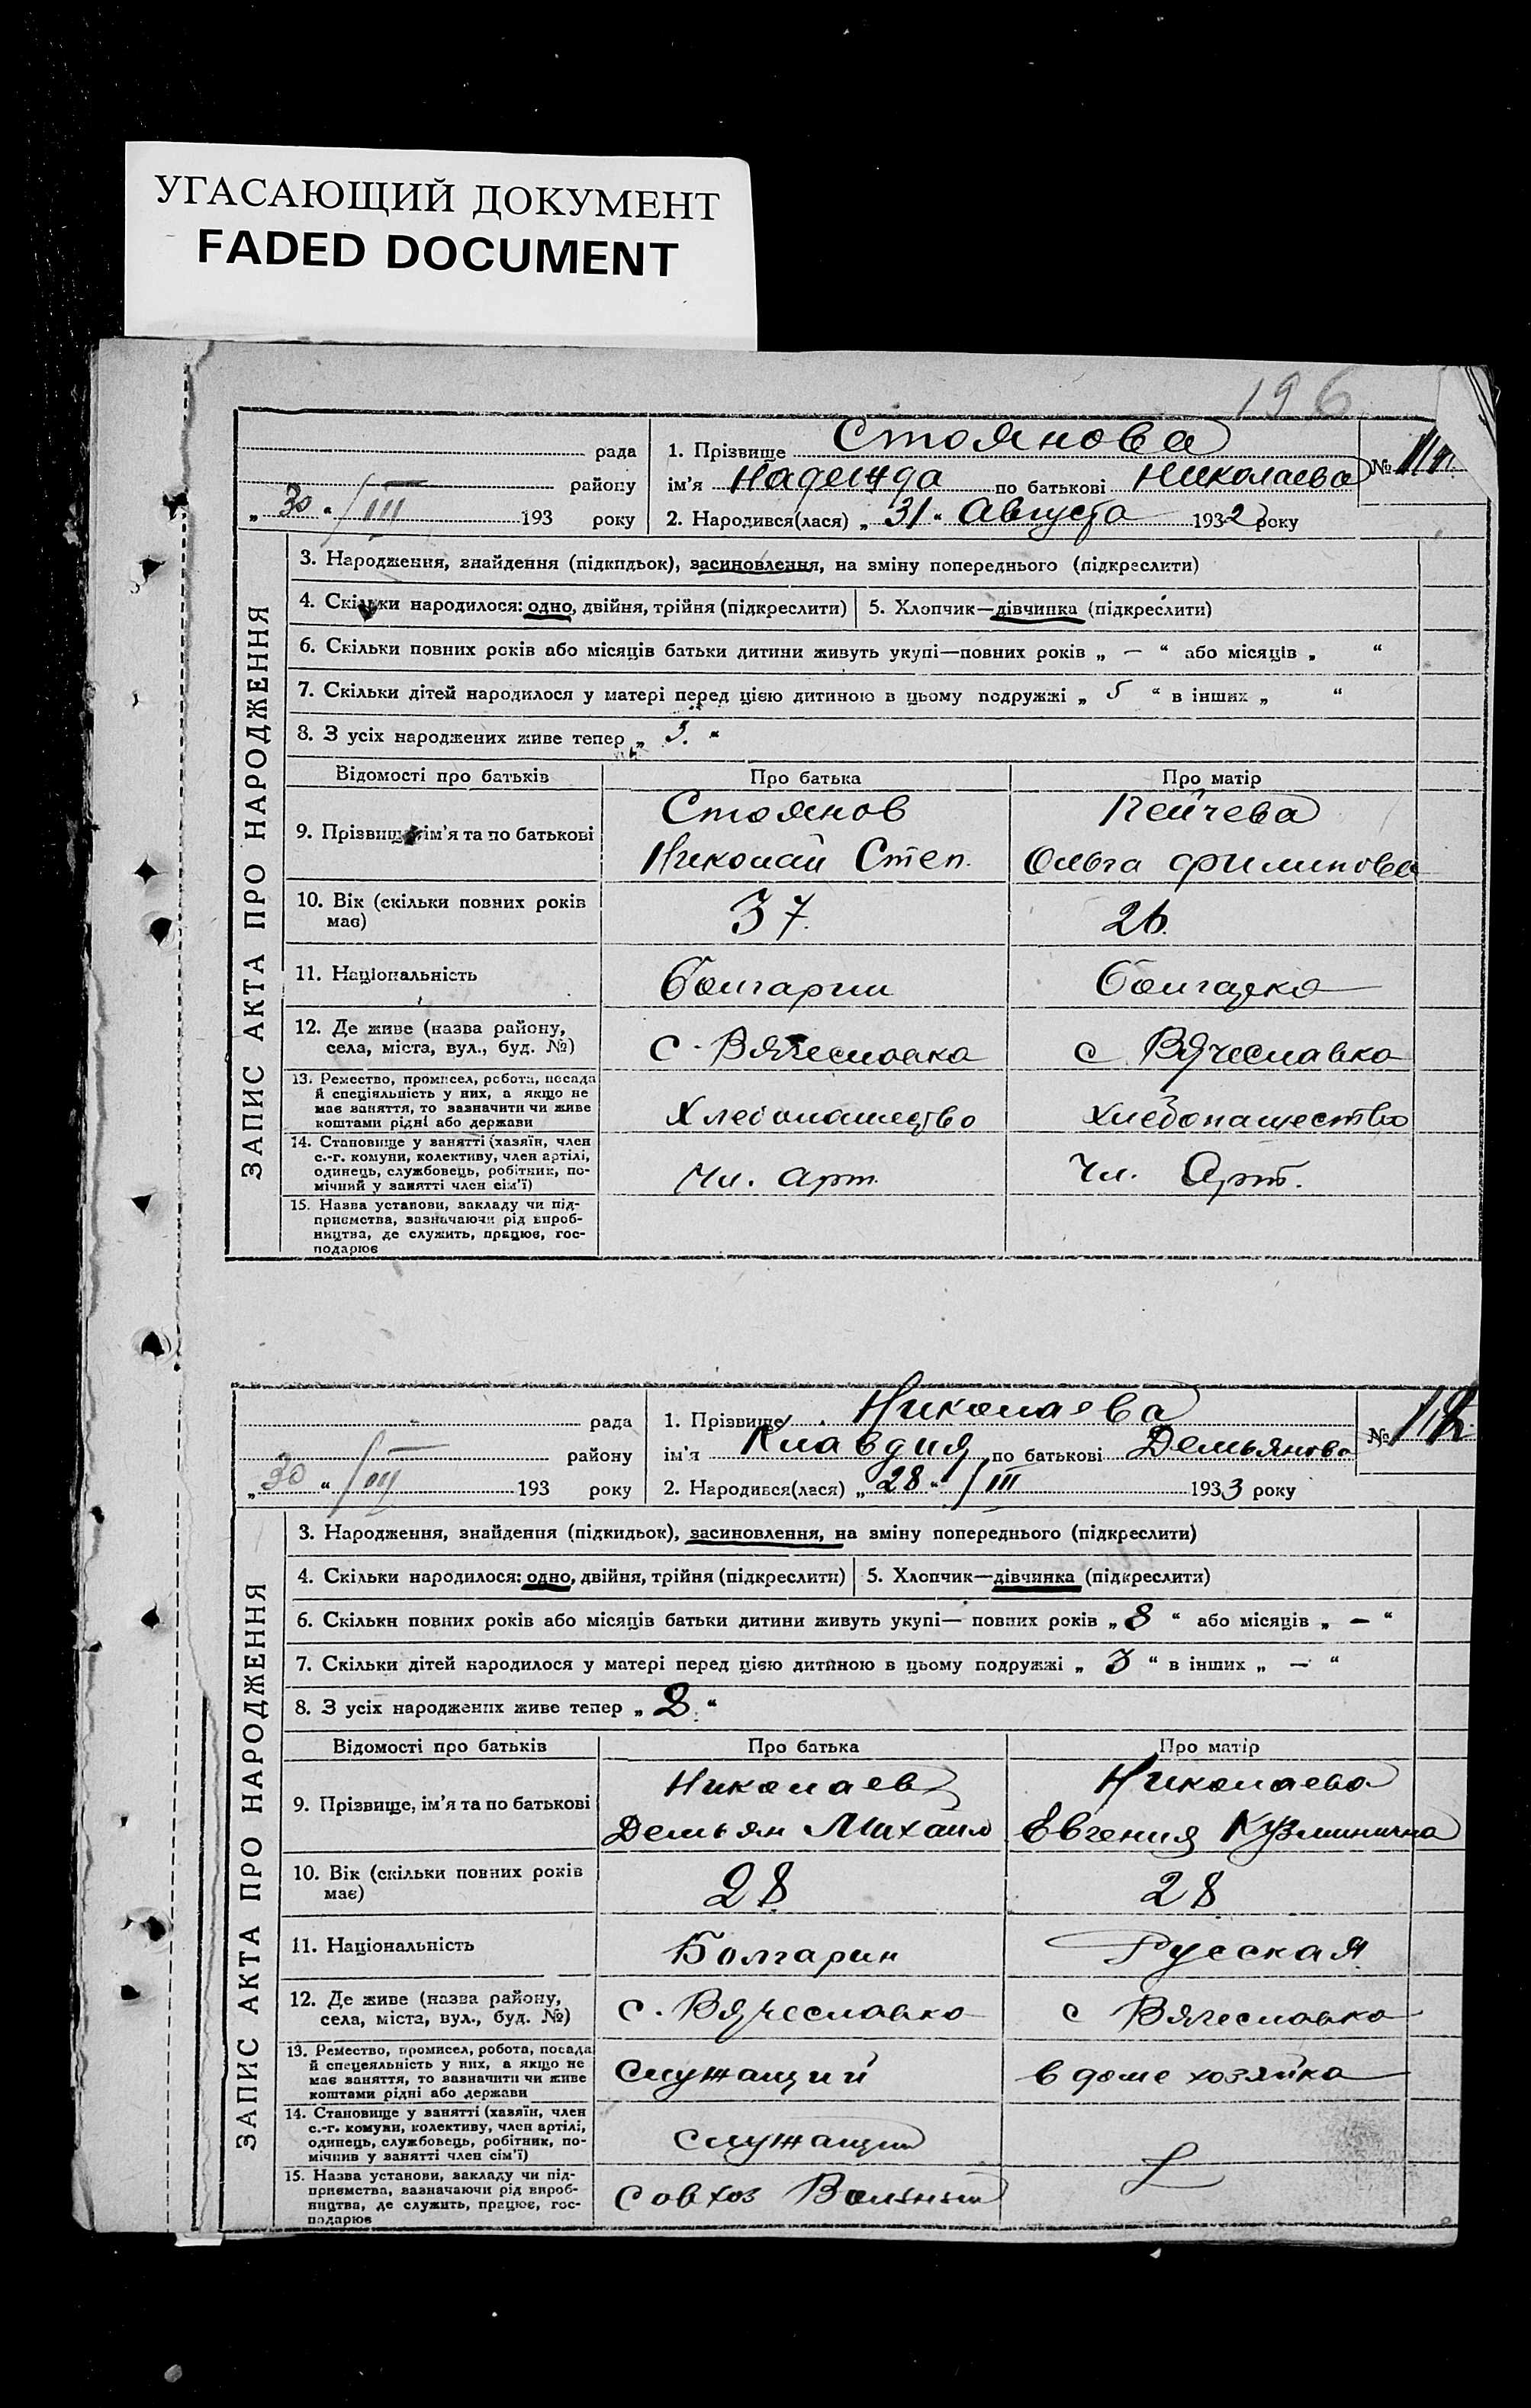 УГАСАЮЩИЙ ДОКУМЕНТ
FADED DOCUMENT
196
ЗАПИС АКТА ПРО НАРОДЖЕННЯ
рада
району
„ 30 “ /III 193 року
1. Прізвище Стоянова
№
ім’я Надежда по батькові Николаева
2. Народився(лася) „ 31 “ Августа 1932 року
3. Народження, знайдення (підкидьок), засиновлення, на зміну попереднього (підкреслити)
4. Скільки народилося: одно, двійня, трійня (підкреслити)
5. Хлопчик—дівчинка (підкреслити)
6. Скільки повних років або місяців батьки дитини живуть укупі—повних років „ — “ або місяців „ “
7. Скільки дітей народилося у матері перед цією дитиною в цьому подружжі „ 5 “ в інших „ “
8. З усіх народжених живе тепер „ “
Відомості про батьків Про батька Про матір
9. Прізвище, ім’я та по батькові
Стоянов
Николай Степ.
Пейчева
Ольга Филипова
10. Вік (скільки повних років
має)
37. 26.
11. Національність
болгарин болгарка
12. Де живе (назва району,
села, міста, вул., буд. №)
с. Вячеславка с Вячеславка
13. Ремество, промисел, робота, посада
й спеціяльність у них, а якщо не
має заняття, то зазначити чи живе
коштами рідні або держави
хлебопашество хлебопашество
14. Становище у занятті (хазяїн, член
с.-г. комуни, колективу, член артілі,
одинець, службовець, робітник, по-
мічний у занятті член сім’ї)
чл. арт. чл. Арт.
15. Назва установи, закладу чи під-
приємства, зазначаючи рід вироб-
ництва, де служить, працює, гос-
подарює
ЗАПИС АКТА ПРО НАРОДЖЕННЯ
рада
району
„ 30 “ /III 193 року
1. Прізвище Николаева
№ 112
ім’я Клавдия по батькові Демьянова
2. Народився(лася) „ 28 “ /III 1933 року
3. Народження, знайдення (підкидьок), засиновлення, на зміну попереднього (підкреслити)
4. Скільки народилося: одно, двійня, трійня (підкреслити)
5. Хлопчик—дівчинка (підкреслити)
6. Скільки повних років або місяців батьки дитини живуть укупі— повних років „ 8 “ або місяців „ — “
7. Скільки дітей народилося у матері перед цією дитиною в цьому подружжі „ 3 “ в інших „ — “
8. З усіх народжених живе тепер „ 2. “
Відомості про батьків Про батька Про матір
9. Прізвище, ім’я та по батькові
Николаев
Демьян Михайл
Николаева
Евгения Кузминична
10. Вік (скільки повних років
має)
28 28
11. Національність
Болгарин Русская
12. Де живе (назва району,
села, міста, вул., буд. №)
с. Вячеславка с Вячеславка
13. Ремество, промисел, робота, посада
й спецеяльність у них, а якщо не
має заняття, то зазначити чи живе
коштами рідні або держави
служащий в доме хозяйка
14. Становище у занятті (хазяїн, член
с.-г. комуни, колективу, член артілі,
одинець, службовець, робітник, по-
мічнив у занятті член сім’ї)
служащий
15. Назва установи, закладу чи під-
приємства, зазначаючи рід вироб-
ництва, де служить, працює, гос-
подарює
Совхоз Вольный